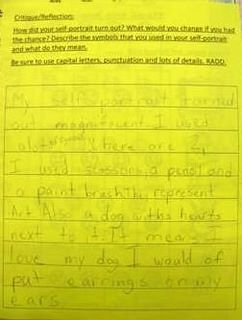 Critique/Reflection:
How did your self-portrait turn out? What would you change if you had
the chance? Describe the symbols that you used in your self-portrait
and what do they mean.
Be sure to use capital letters, punctuation and lots of details. RADD.
My self portrait turned
out magnificent I used
alot there are
I used scissors, a pencil and
a paint brush represent
Art Also a dog with hearts
next to it. It means I
love my dog I would of
put earrings on my
ears